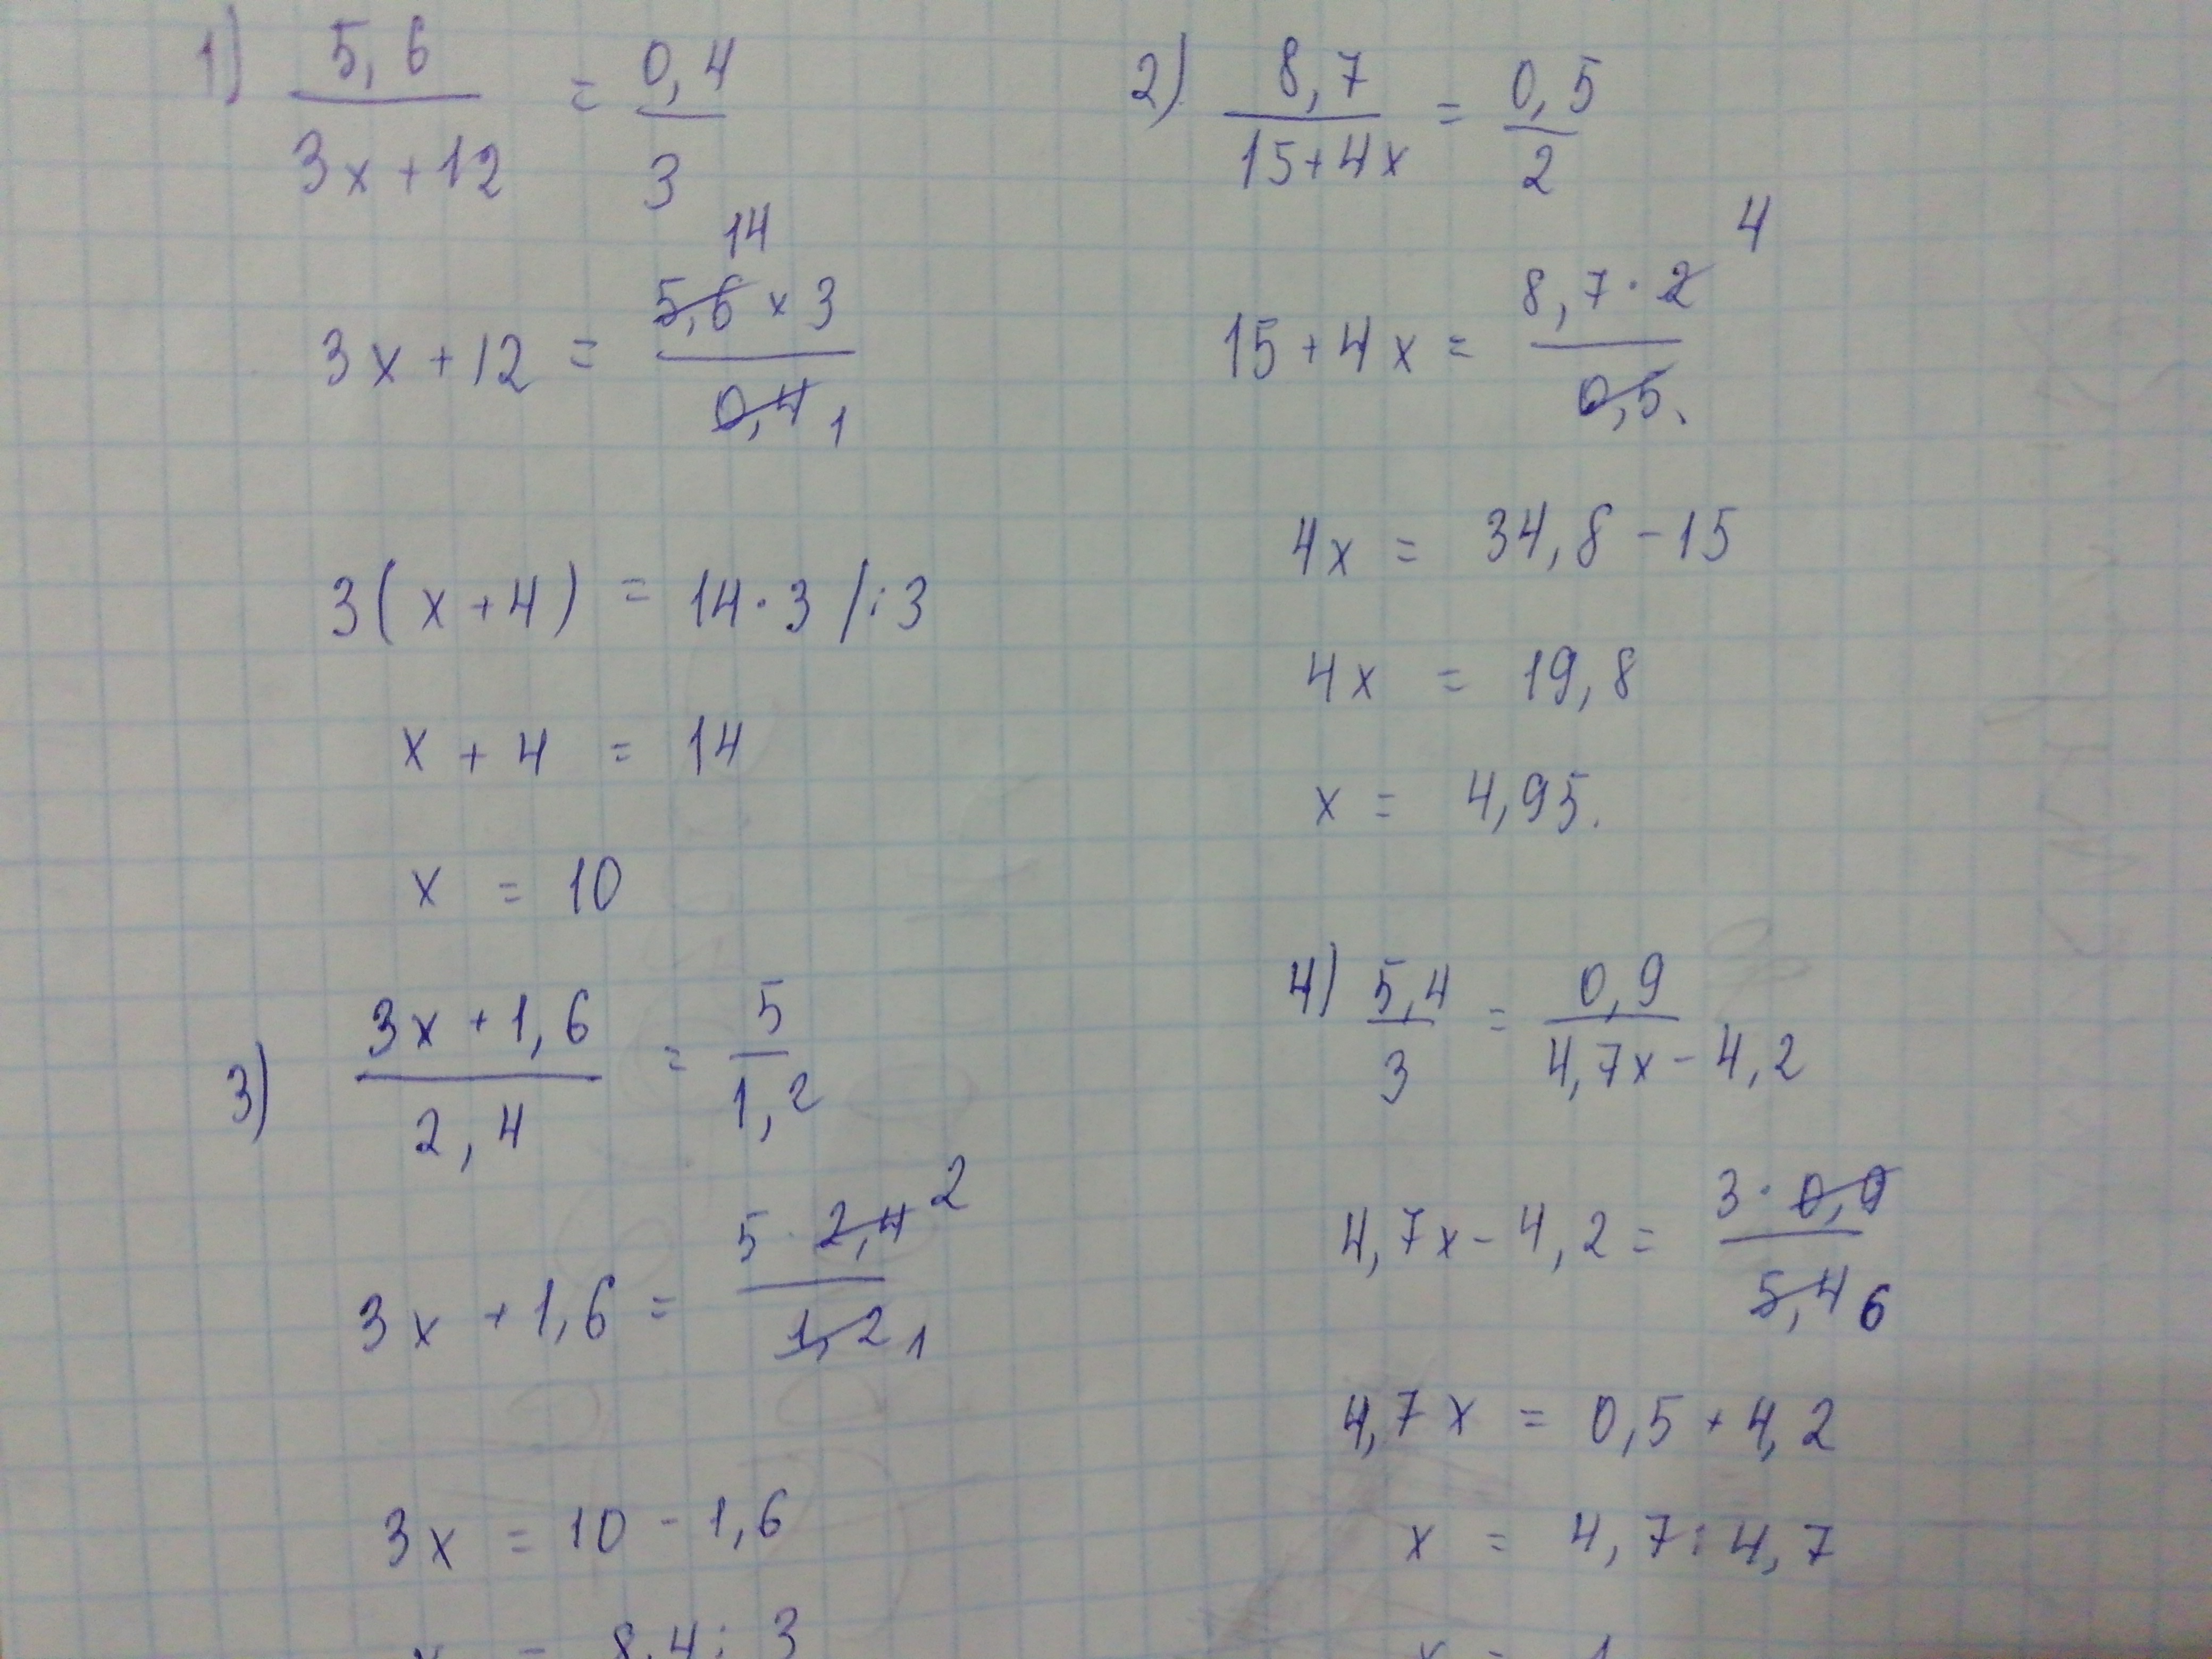 1) 5,6 / 3x+12 = 0,4 / 3
14
3x+12 = 5,6 × 3 / 0,4 1
3(x+4) = 14·3 /:3
x + 4 = 14
x = 10
2) 8,7 / 15+4x = 0,5 / 2
4
15+4x = 8,7·2 / 0,5.
4x = 34,8 - 15
4x = 19,8
x = 4,95.
3) 3x+1,6 / 2,4 = 5 / 1,2
3x +1,6 = 5·2,4 2 / 1,2 1
3x = 10 - 1,6
x = 8,4 : 3
4) 5,4 / 3 = 0,9 / 4,7x - 4,2
4,7x - 4,2 = 3·0,9 / 5,4 6
4,7x = 0,5 + 4,2
x = 4,7 : 4,7
x = 1